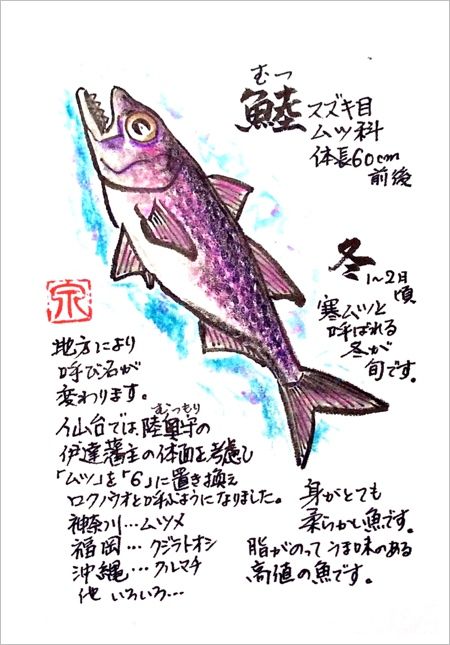 むつ
鯥
スズキ目
ムツ科
体長60cm
前後
冬
1〜2月
頃
寒ムツと
呼ばれる
冬が
旬です。
地方により
呼び名が
変わります。
むつもり
仙台では、陸奥守の
伊達藩主の体面を考慮し
「ムツ」を「6」に置き換え
ロクノウオと呼ぶようになりました。
神奈川…ムツメ
福岡…クジラトオシ
沖縄…クルマチ
他 いろいろ…
身がとても
柔らかい魚です。
脂がのってうま味のある
高値の魚です。